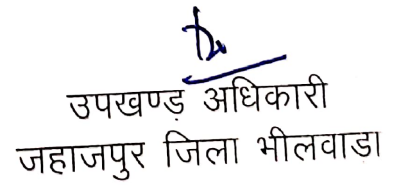 उपखण्ड़ अधिकारी
जहाजपुर जिला भीलवाडा